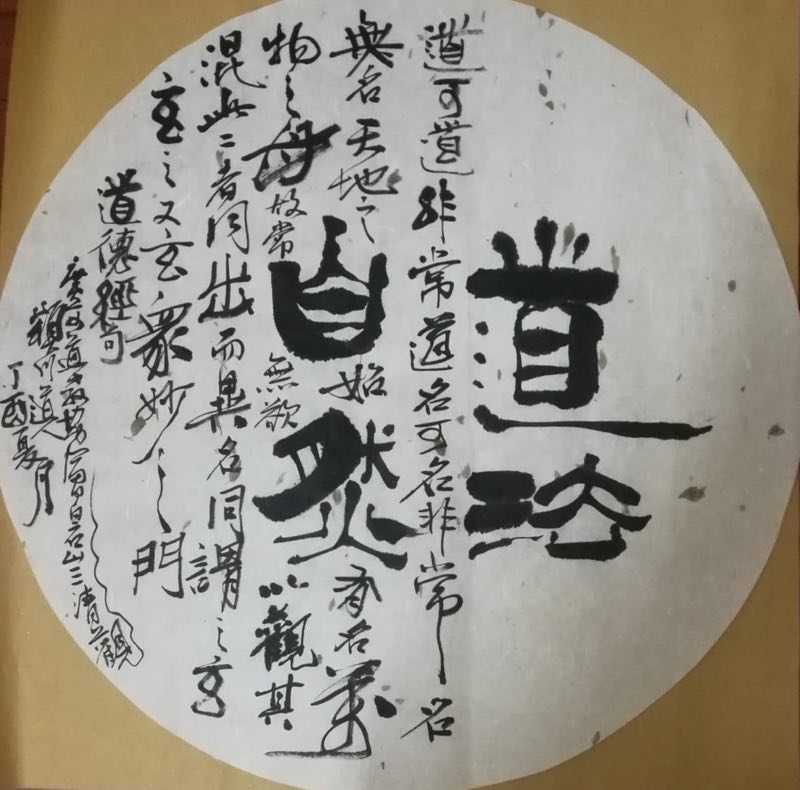 道法
自然
道可道非常道名可名非常名
無名天地之始有名萬
物之母故常無欲以觀其
混此二者同出而異名同謂之玄
玄之又玄衆妙之門
道德經句
三清觀
道人
丁酉夏月